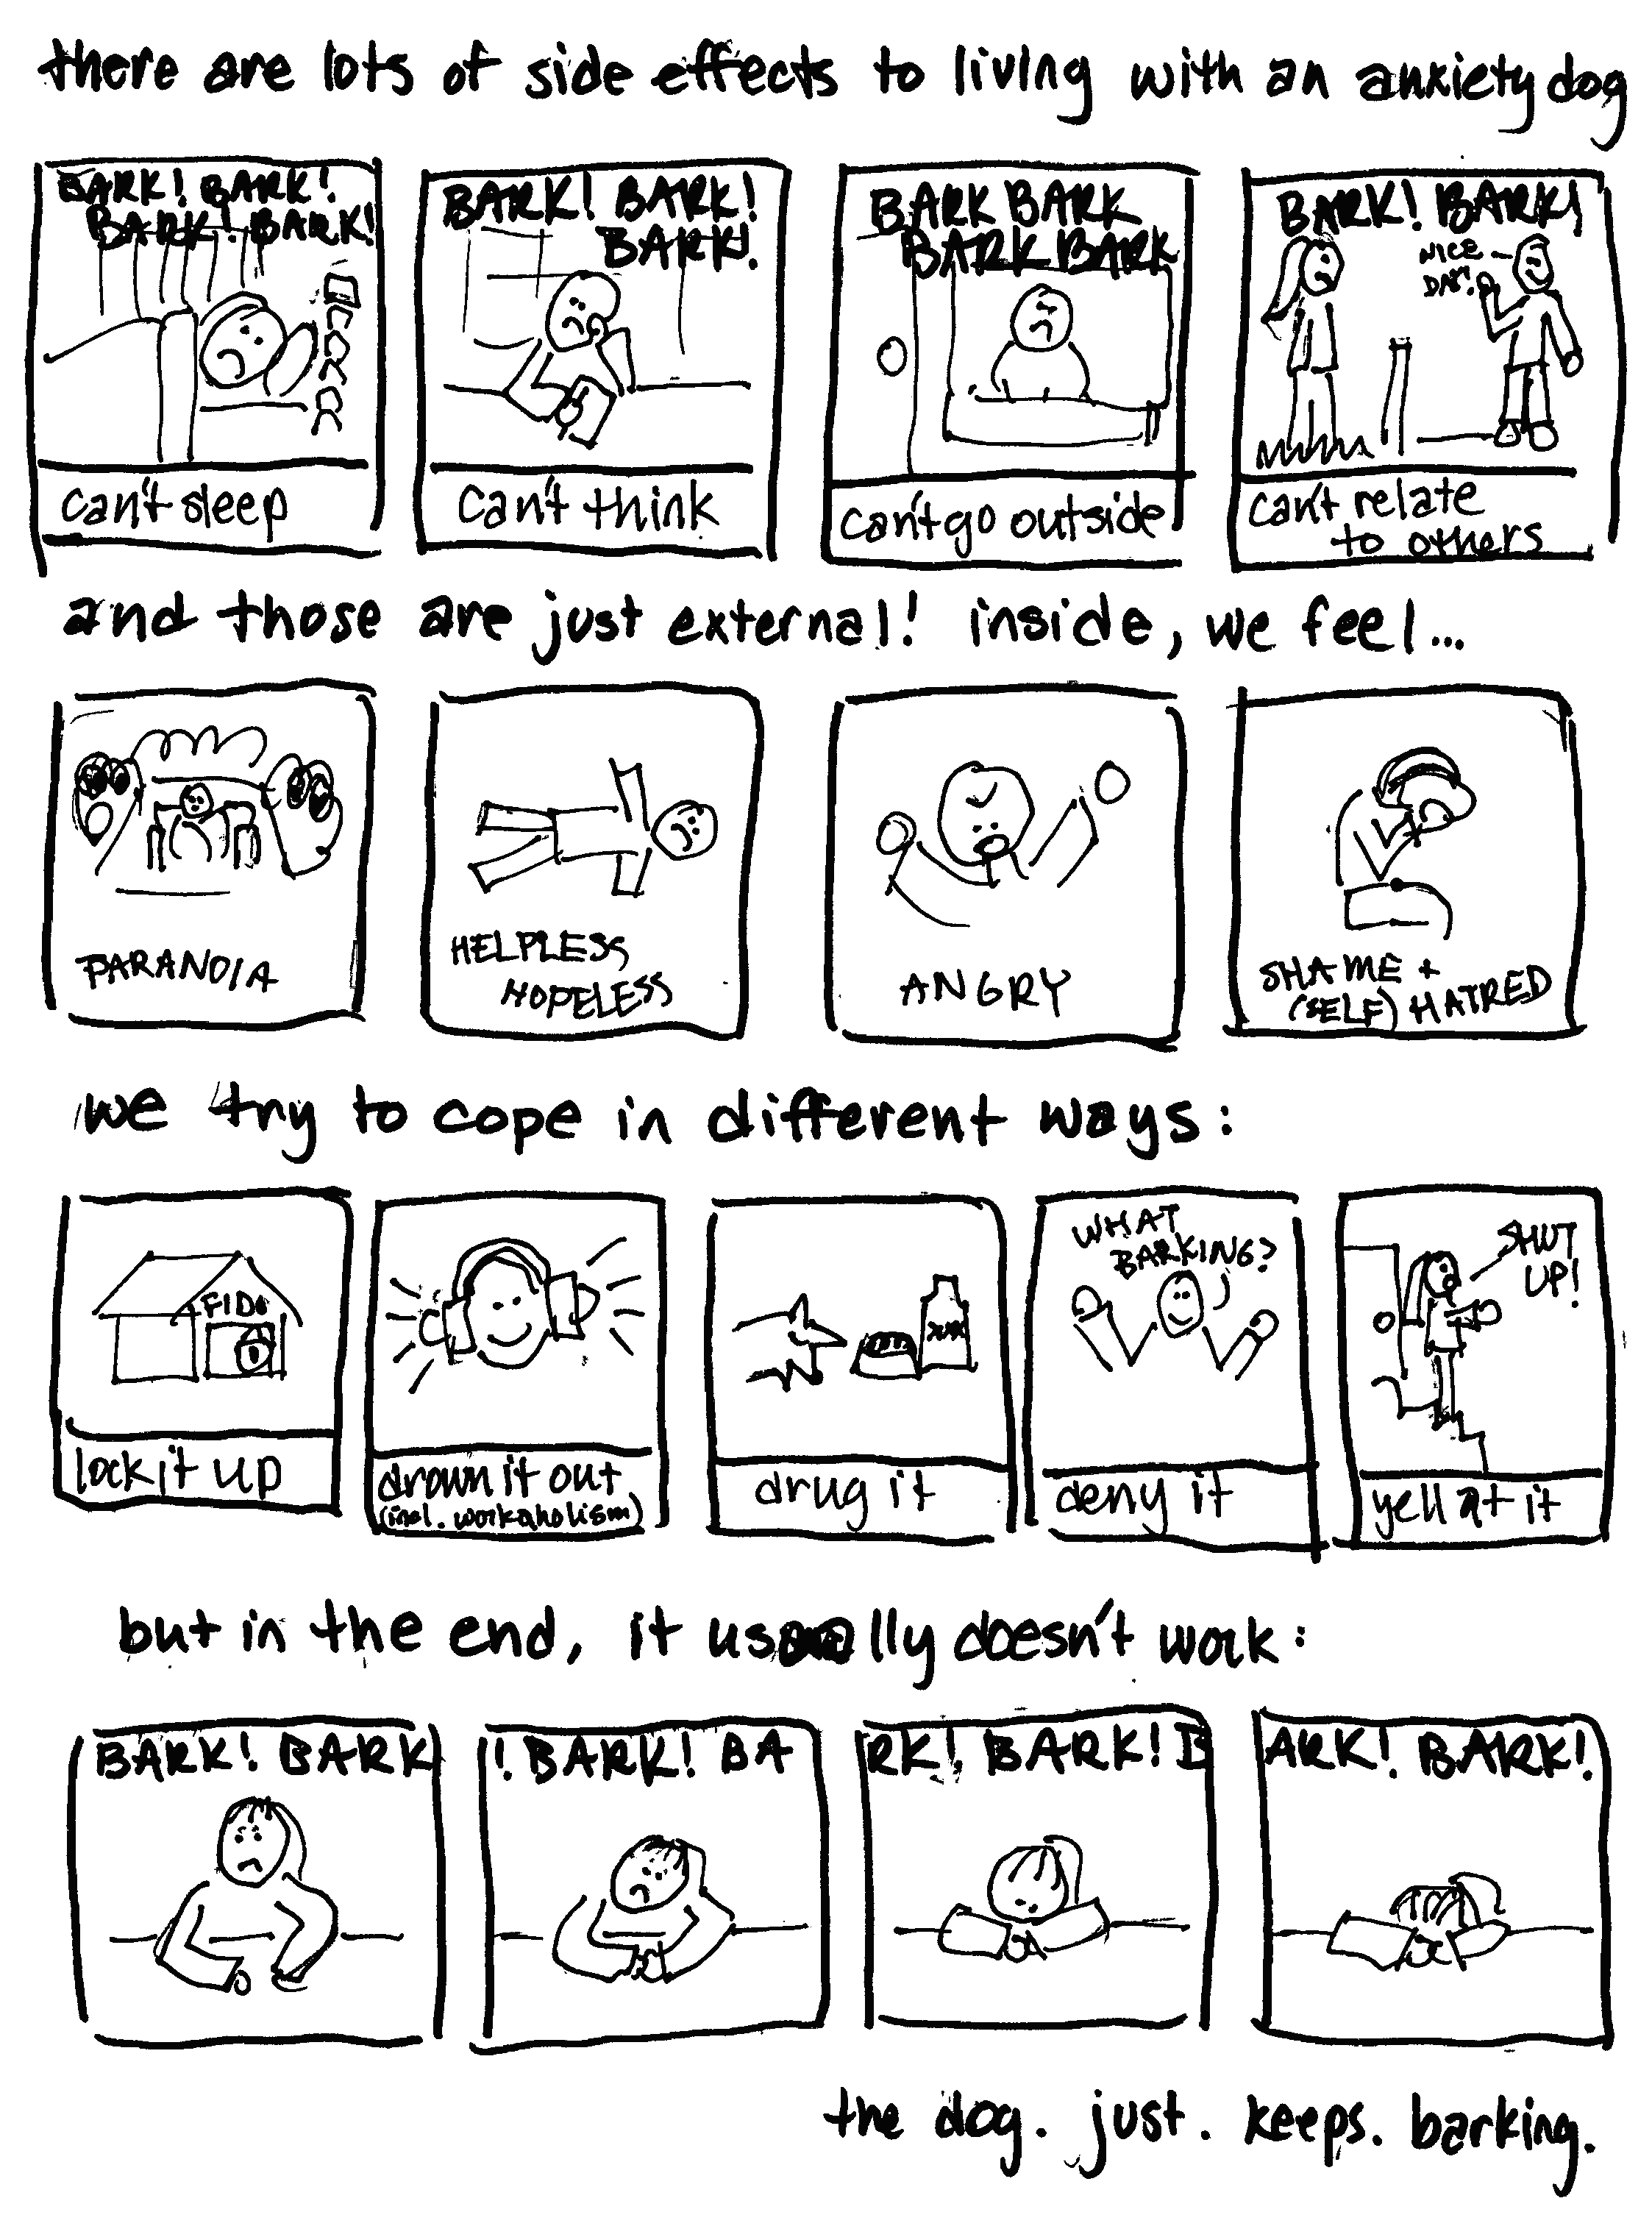 there are lots of side effects to living with an anxiety dog
BARK! BARK!
BARK! BARK!
can't sleep
BARK! BARK!
BARK!
can't think
BARK BARK
BARK BARK
can't go outside
BARK! BARK!
NICE
DAY!
can't relate
to others
and those are just external! inside, we feel...
PARANOIA
HELPLESS
HOPELESS
ANGRY
SHAME +
(SELF) HATRED
we try to cope in different ways:
FIDO
lock it up
drown it out
(incl. workaholism)
XXX
drug it
WHAT
BARKING?
deny it
SHUT
UP!
yell at it
but in the end, it usually doesn't work:
BARK! BARK
! BARK! BA
RK! BARK! B
ARK! BARK!
the dog. just. keeps. barking.